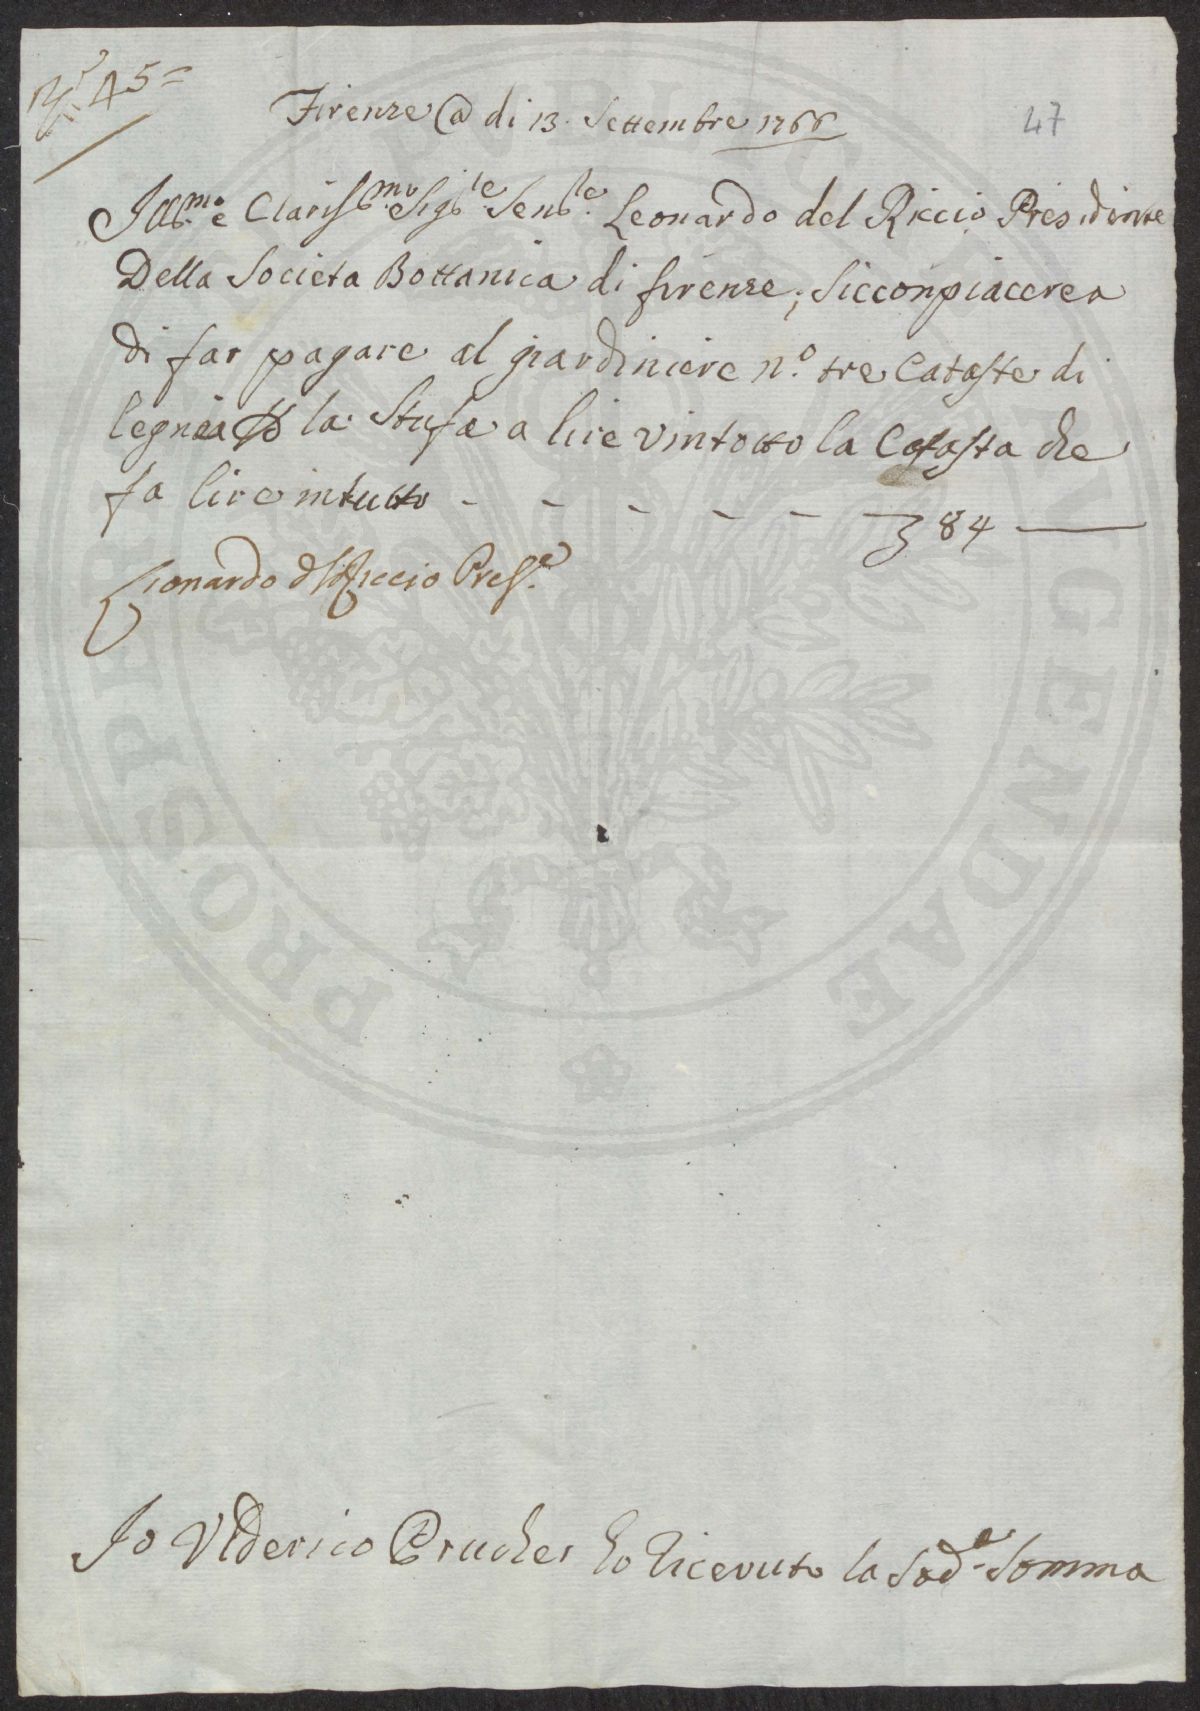 N.° 45 =
Firenze @ di 13. Settembre 1766
47
Ill:mo e Clariss:mo Sig:le Sen:le Leonardo del Riccio Presidente
Della Societa Bottanica di firenze; Sicconpiacerea
di far pagare al giardiniere n.° tre Cataste di
legnia p la Stufa a lire vintotto la Catasta che
fa lire intutto - - - - - - 84
Lionardo del Riccio Pres.e
Io Uldderico Prucher ho Riceuuto la Sod.a Somma
PUBLICAE
PROSPERITATI
AUGENDAE